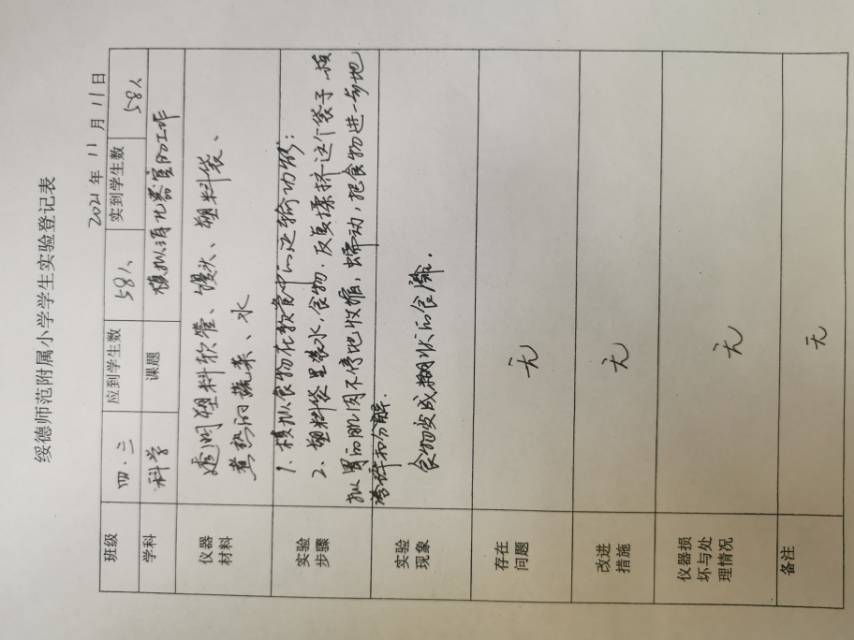 绥德师范附属小学学生实验登记表
2021年 11月 11日
班级 四.二 应到学生数 58人 实到学生数 58人
学科 科学 课题 模拟消化器官的工作
仪器材料 透明塑料软管、馒头、塑料袋、
煮熟的蔬菜、水
实验步骤 1. 模拟食物在软管中的运输功能:
2. 塑料袋里装水,食物,反复揉挤这个袋子.模
拟胃的肌肉不停地收缩,蠕动,把食物进一步地
和分解.
实验现象 食物变成糊状的食糜.
存在问题 无
改进措施 无
仪器损坏与处理情况 无
备注 无